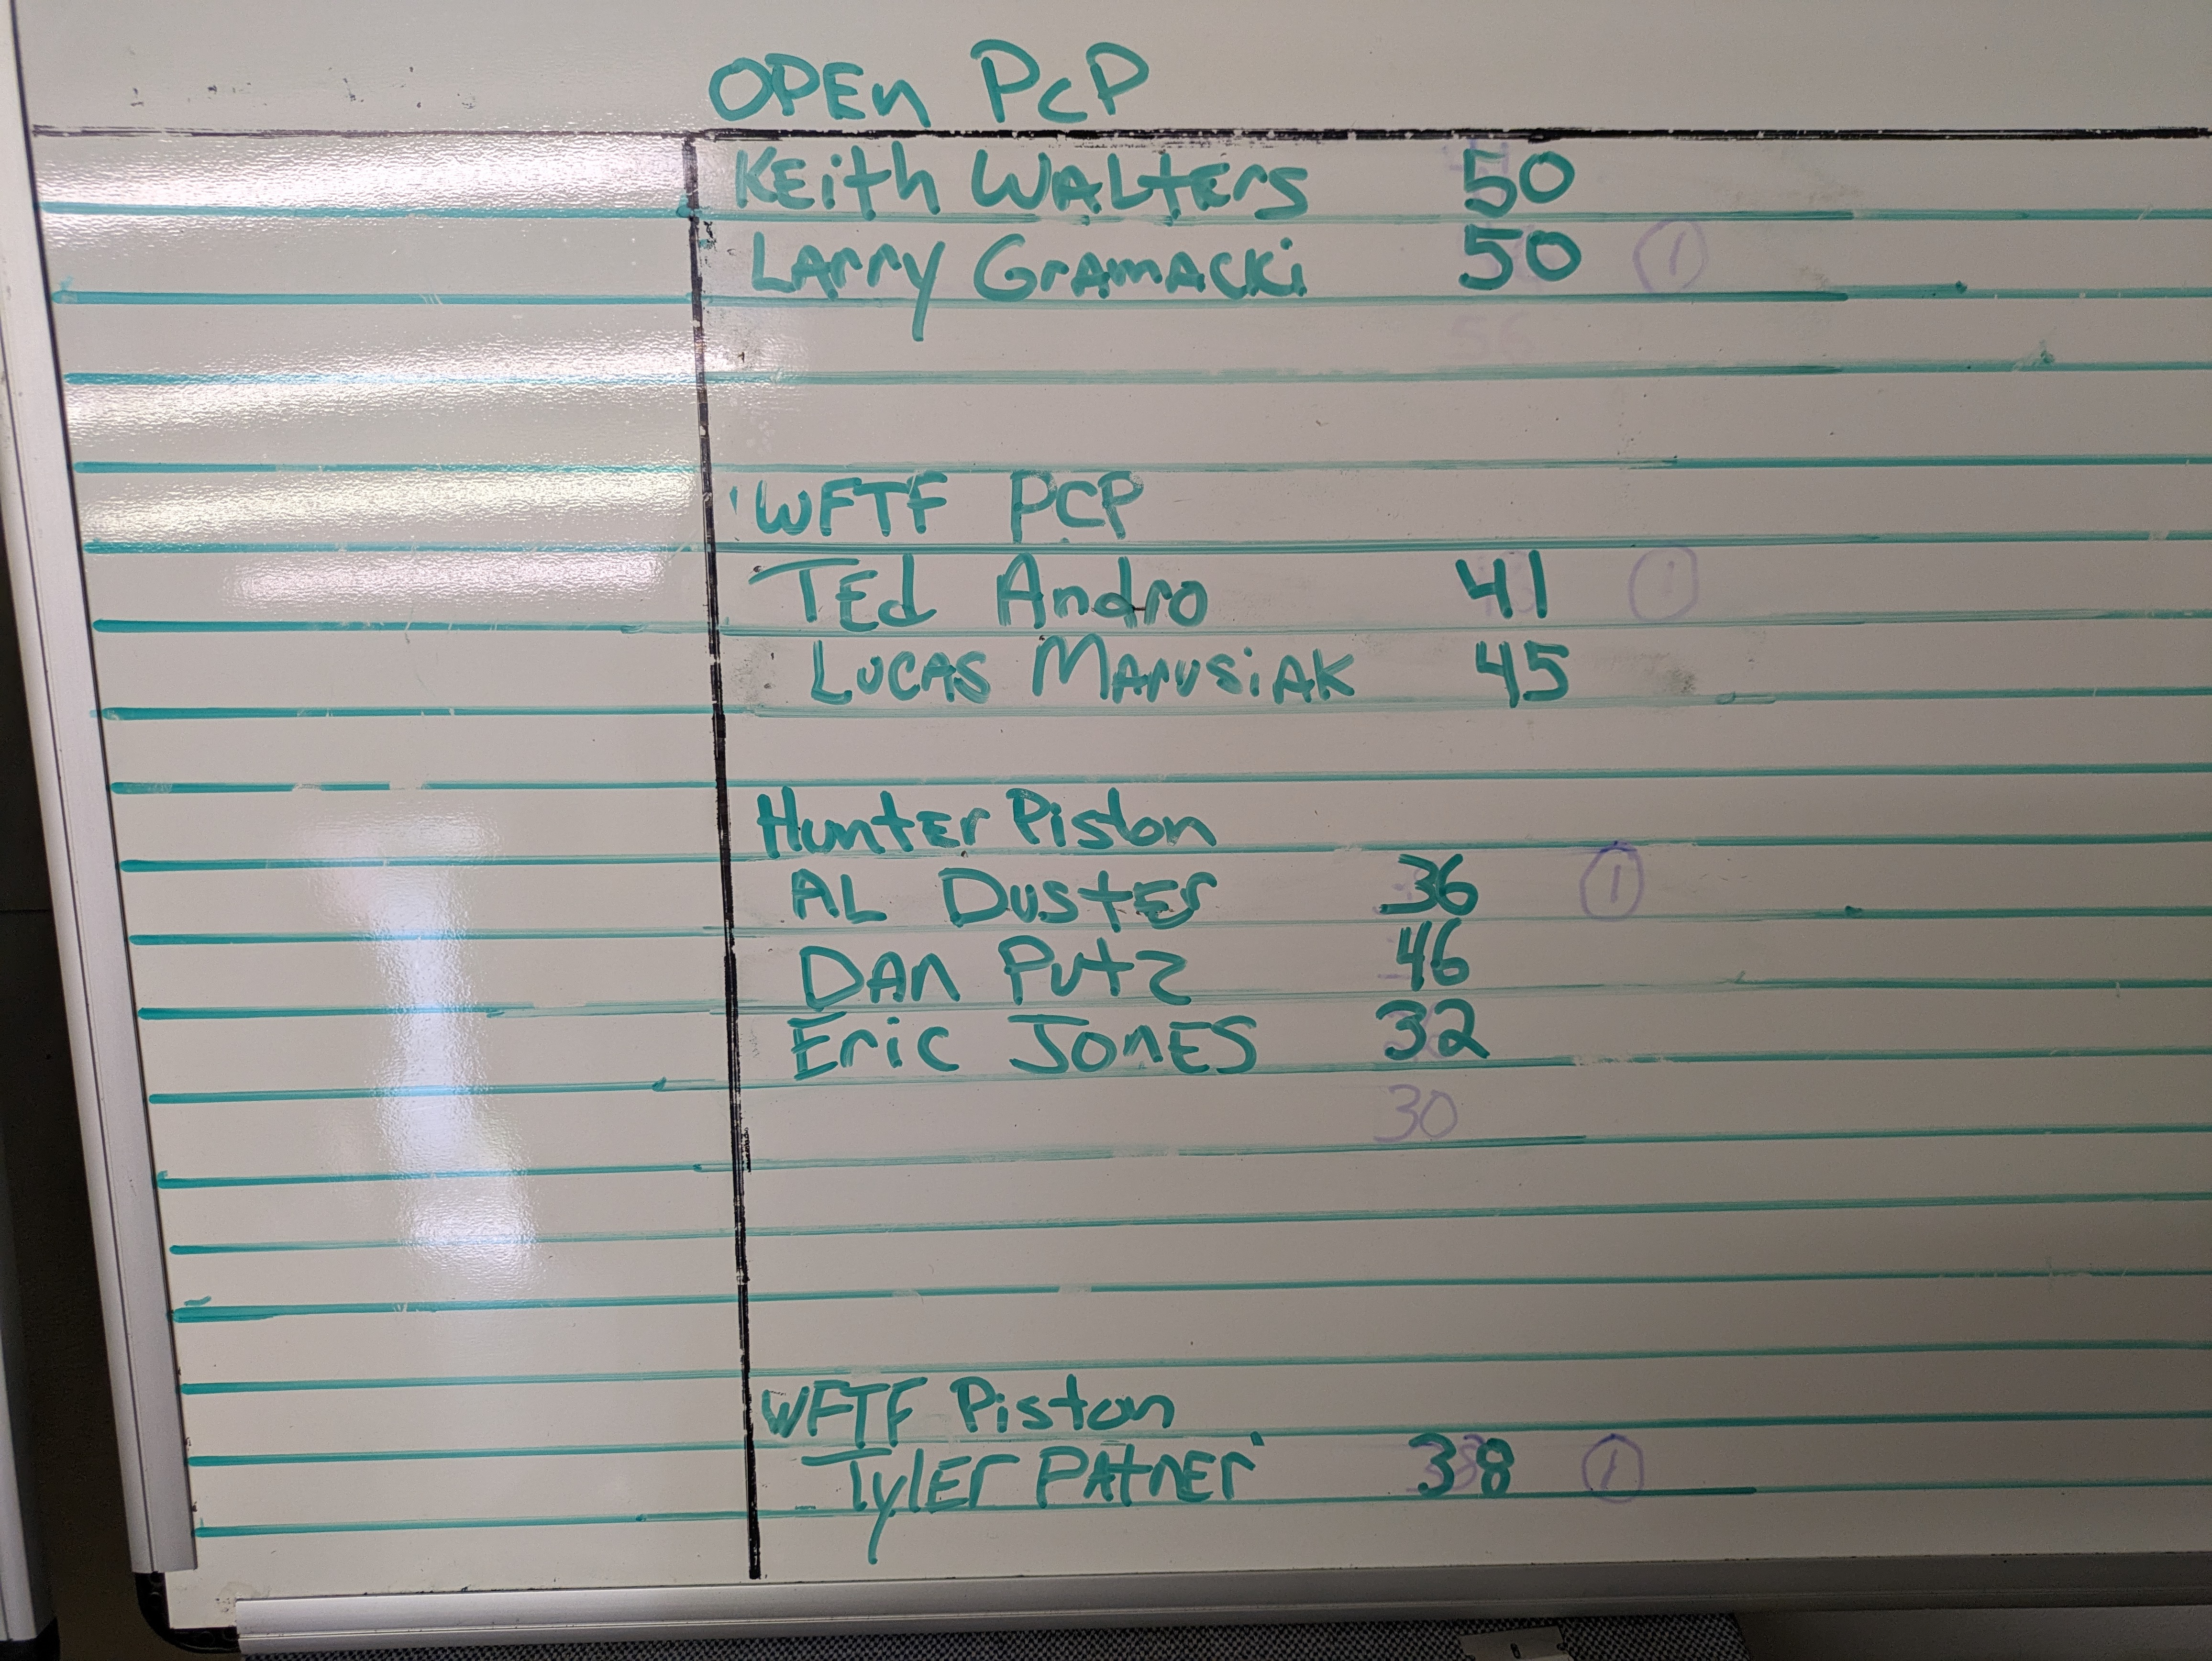 OPEn PcP
KEith WALtErs 50
LArry GrAmACKi 50 1
56
WFTF PCP
TEd Andro 41 1
LUCAS MArUSiAK 45
HuntEr Piston
AL DustEr 36 1
DAn Putz 46
Eric JonES 32
30
WFTF Piston
TylEr PAtnEr 38 1